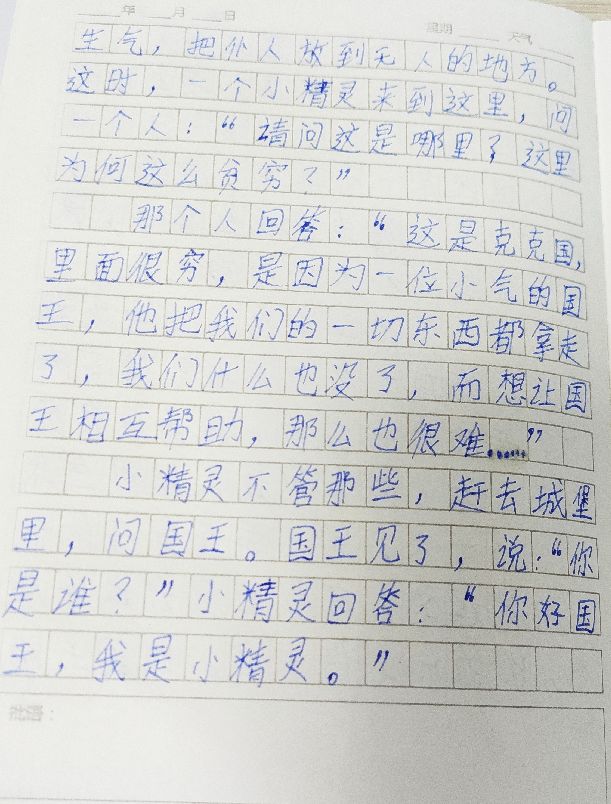 年 月 日 星期 天气
生气，把仆人放到无人的地方。
这时，一个小精灵来到这里，问
一个人：“请问这是哪里？这里
为何这么贫穷？”
那个人回答：“这是克克国，
里面很穷，是因为一位小气的国
王，他把我们的一切东西都拿走
了，我们什么也没了，而想让国
王相互帮助，那么也很难……”
小精灵不管那些，赶去城堡
里，问国王。国王见了，说：“你
是谁？”小精灵回答：“你好国
王，我是小精灵。”